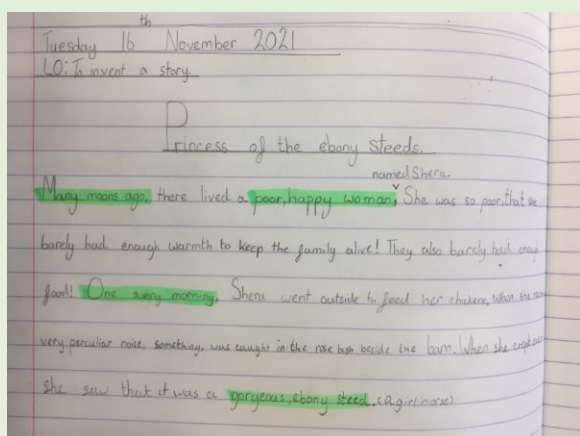 Tuesday 16th November 2021
LO: To invent a story.
Princess of the ebony steeds.
named Sheru.
Many moons ago, there lived a poor, happy woman, She was so poor, that she
barely had enough warmth to keep the family alive! They also barely had enough
food! One sunny morning, Sheru went outside to feed her chickens, When she
very peculiar noise, something, was caught in the rose bush beside the barn. When she crept
she saw that it was a gorgeous, ebony steed. (a girl horse)